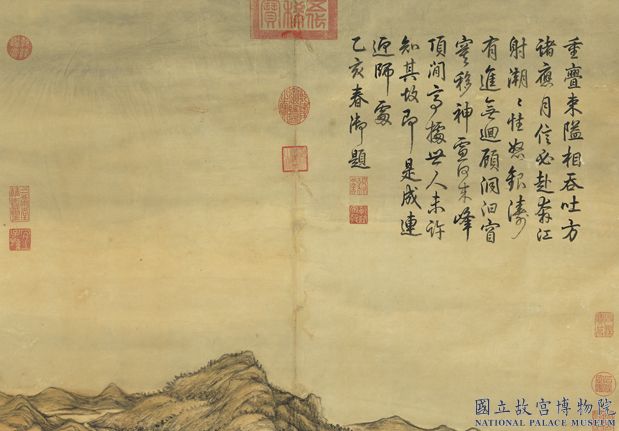 重疊束隘相吞吐方
諸應月信必赴奔江
射潮〻性怒銀濤
有進無迴顧洞汩窅
寥移神慮何來峰
頂間高據世人未許
知其故即是成連
迎師處
乙亥春御題
國立故宮博物院
NATIONAL PALACE MUSEUM